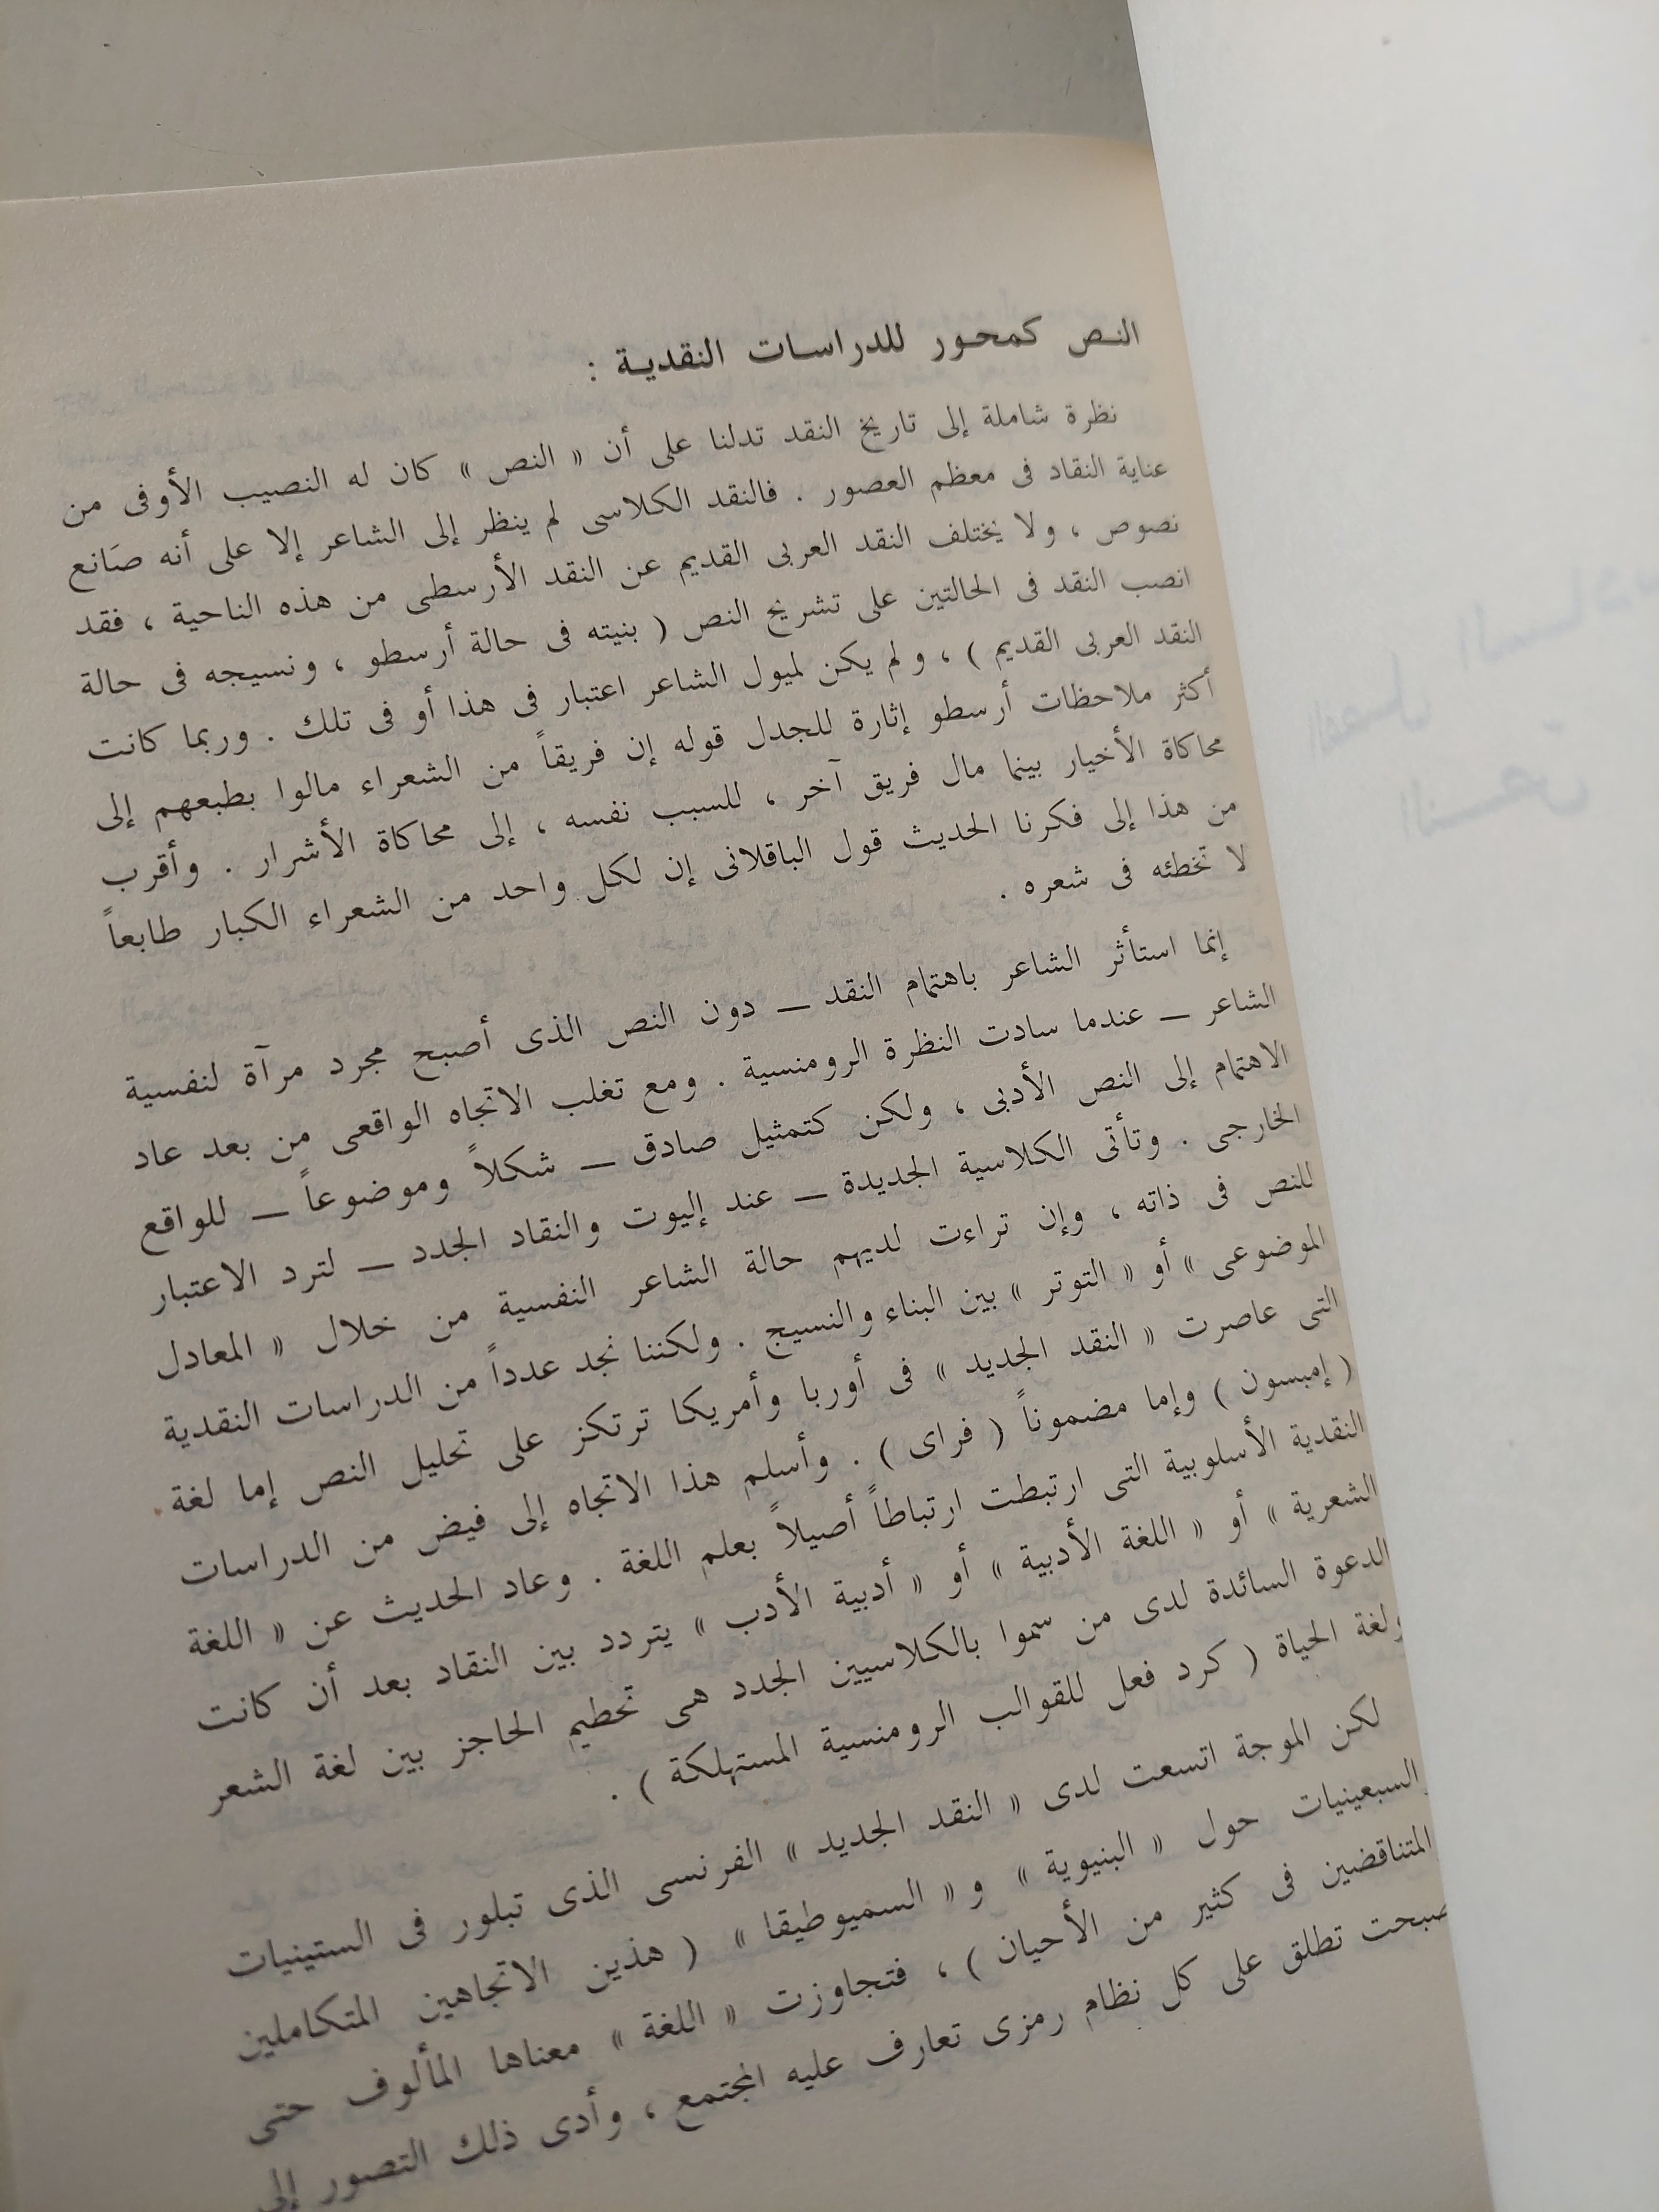 النص كمحور للدراسات النقدية :
نظرة شاملة إلى تاريخ النقد تدلنا على أن « النص » كان له النصيب الأوفى من
عناية النقاد فى معظم العصور . فالنقد الكلاسى لم ينظر إلى الشاعر إلا على أنه صَانع
نصوص ، ولا يختلف النقد العربى القديم عن النقد الأرسطى من هذه الناحية ، فقد
انصب النقد فى الحالتين على تشريح النص ( بنيته فى حالة أرسطو ، ونسيجه فى حالة
النقد العربى القديم ) ، ولم يكن لميول الشاعر اعتبار فى هذا أو فى تلك . وربما كانت
أكثر ملاحظات أرسطو إثارة للجدل قوله إن فريقاً من الشعراء مالوا بطبعهم إلى
محاكاة الأخيار بينما مال فريق آخر ، للسبب نفسه ، إلى محاكاة الأشرار . وأقرب
من هذا إلى فكرنا الحديث قول الباقلانى إن لكل واحد من الشعراء الكبار طابعاً
لا تخطئه فى شعره .
إنما استأثر الشاعر باهتمام النقد — دون النص الذى أصبح مجرد مرآة لنفسية
الشاعر — عندما سادت النظرة الرومنسية . ومع تغلب الاتجاه الواقعى من بعد عاد
الاهتمام إلى النص الأدبى ، ولكن كتمثيل صادق — شكلاً وموضوعاً — للواقع
الخارجى . وتأتى الكلاسية الجديدة — عند إليوت والنقاد الجدد — لترد الاعتبار
للنص فى ذاته ، وإن تراءت لديهم حالة الشاعر النفسية من خلال « المعادل
الموضوعى » أو « التوتر » بين البناء والنسيج . ولكننا نجد عدداً من الدراسات النقدية
التى عاصرت « النقد الجديد » فى أوربا وأمريكا ترتكز على تحليل النص إما لغة
( إمبسون ) وإما مضموناً ( فراى ) . وأسلم هذا الاتجاه إلى فيض من الدراسات
النقدية الأسلوبية التى ارتبطت ارتباطاً أصيلاً بعلم اللغة . وعاد الحديث عن « اللغة
الشعرية » أو « اللغة الأدبية » أو « أدبية الأدب » يتردد بين النقاد بعد أن كانت
الدعوة السائدة لدى من سموا بالكلاسيين الجدد هى تحطيم الحاجز بين لغة الشعر
ولغة الحياة ( كرد فعل للقوالب الرومنسية المستهلكة ) .
لكن الموجة اتسعت لدى « النقد الجديد » الفرنسى الذى تبلور فى الستينيات
والسبعينيات حول « البنيوية » و « السميوطيقا » ( هذين الاتجاهين المتكاملين
المتناقضين فى كثير من الأحيان ) ، فتجاوزت « اللغة » معناها المألوف حتى
صبحت تطلق على كل نظام رمزى تعارف عليه المجتمع ، وأدى ذلك التصور إلى